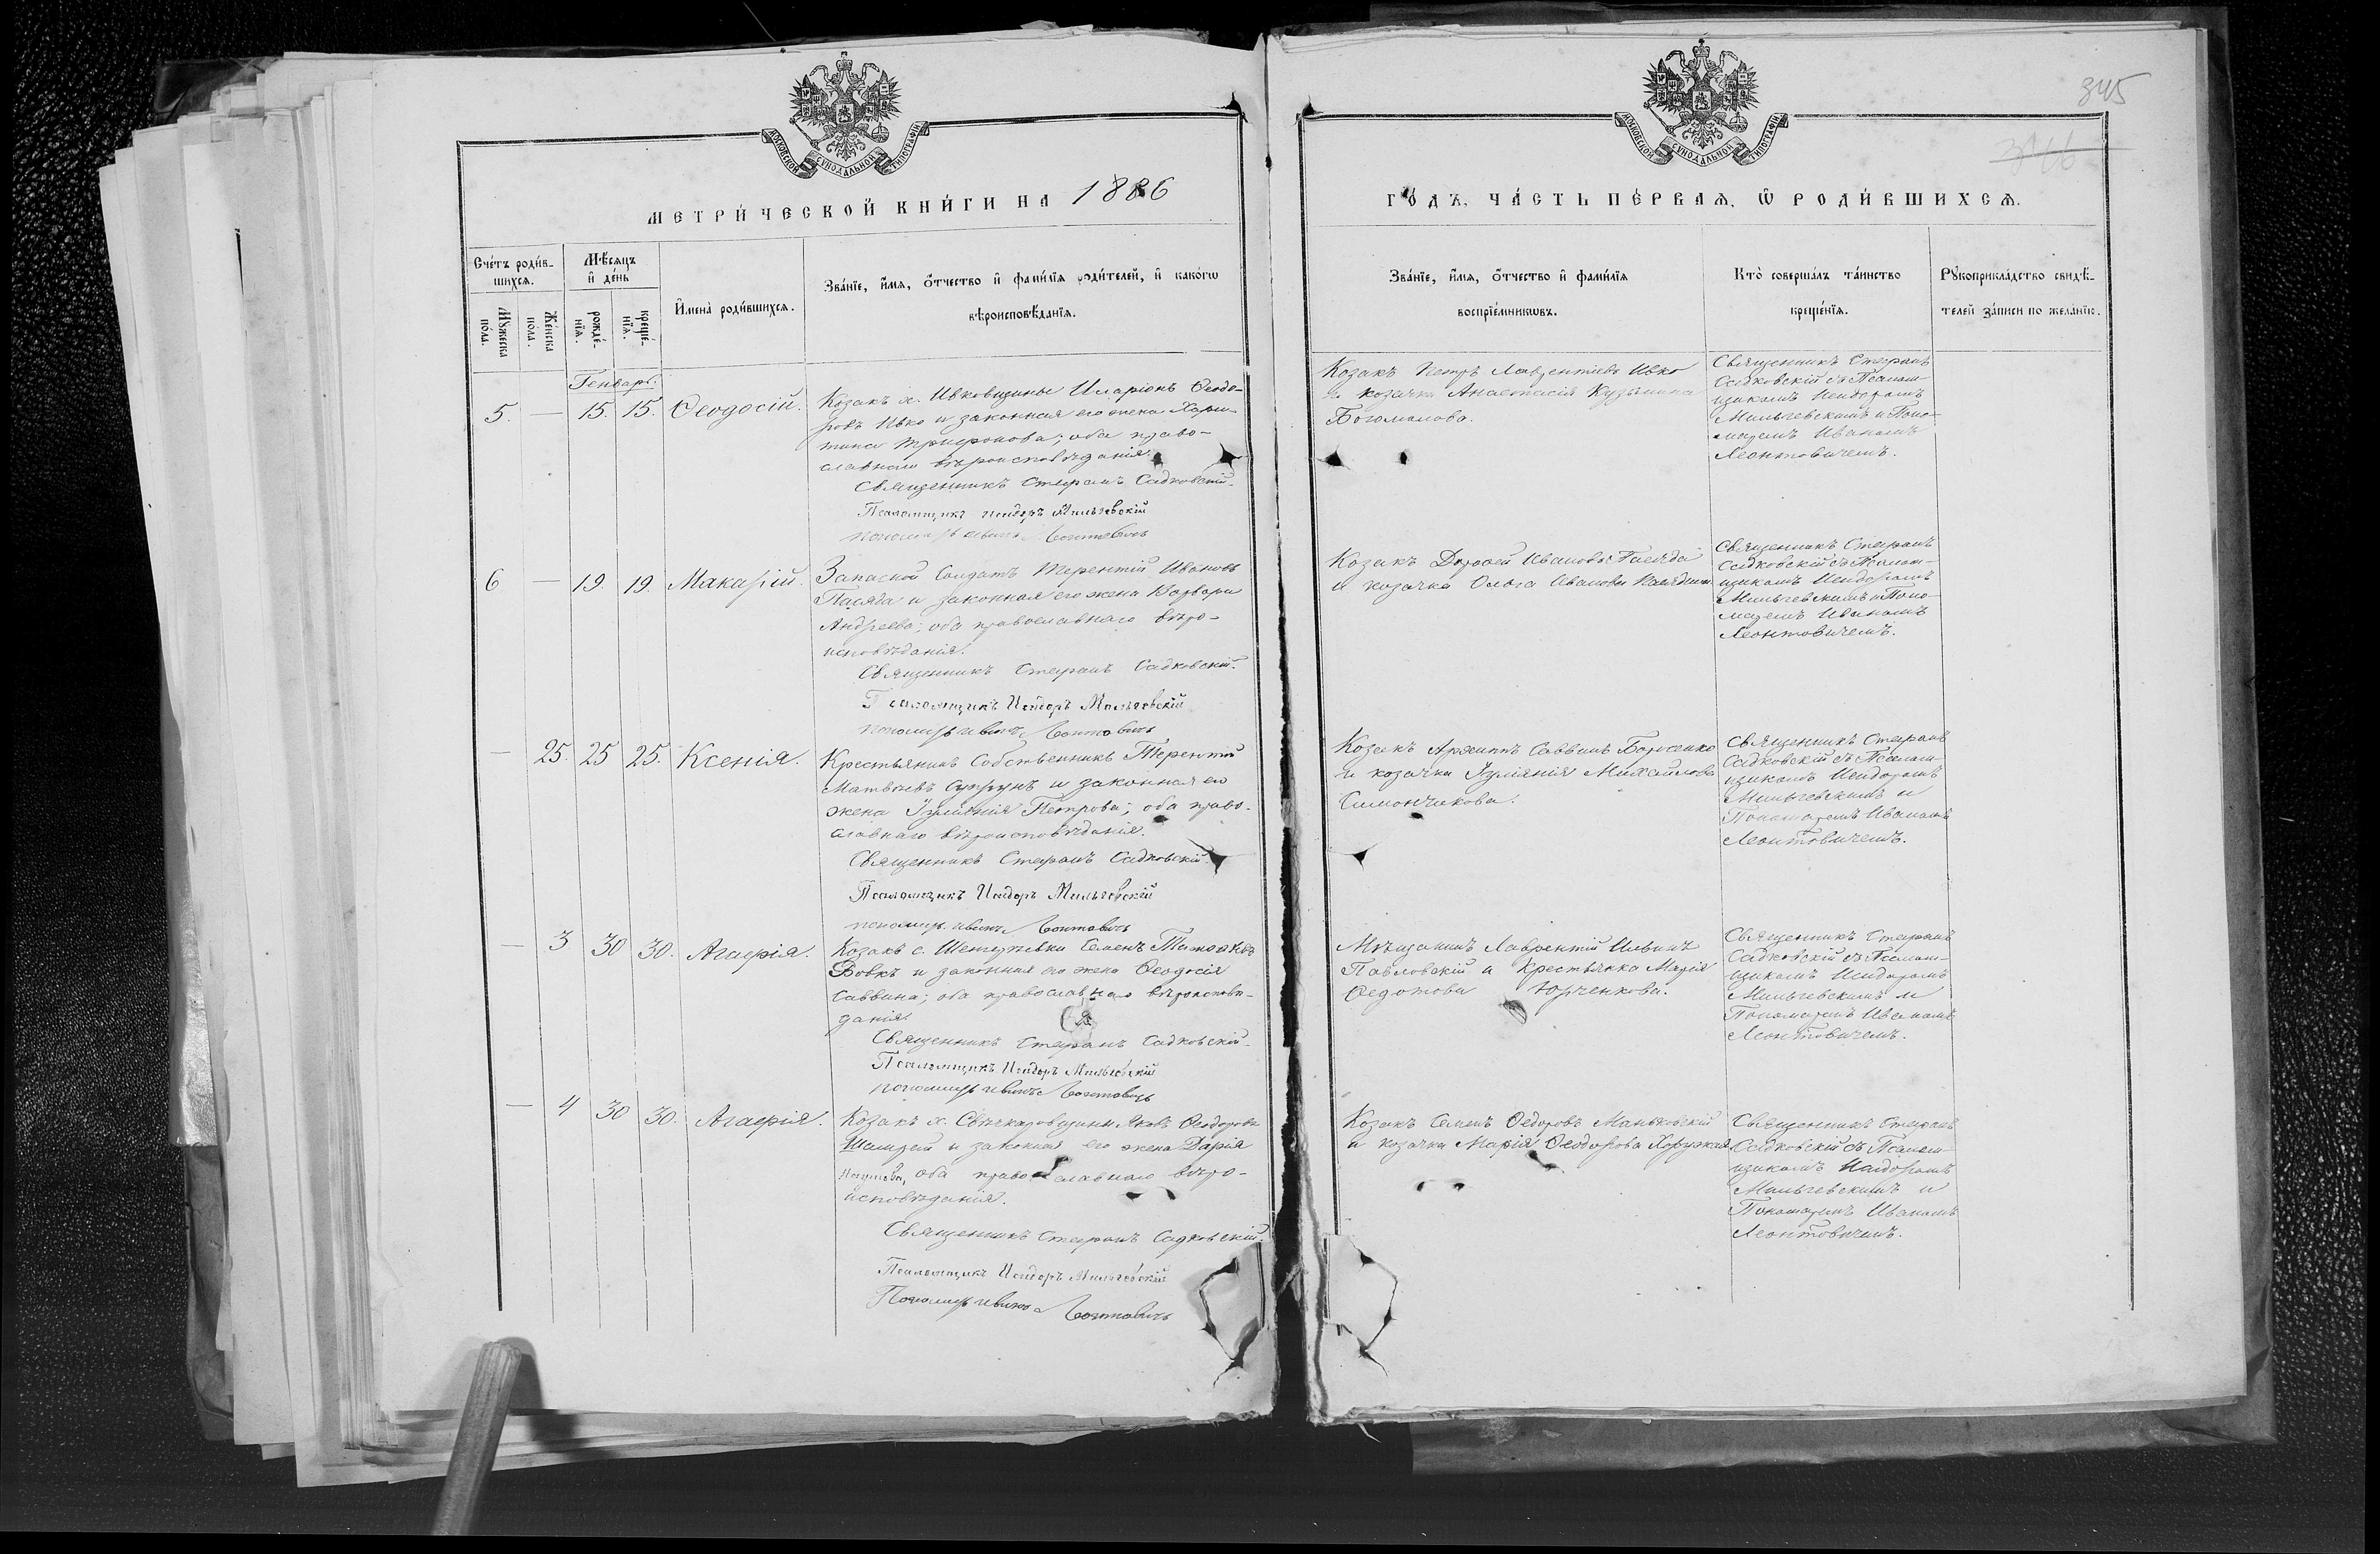 МОСКОВСКОЙ СѴНОДАЛЬНОЙ ТИПОГРАФІИ
МЕТРИ́ЧЕСКОЙ КНИ́ГИ НА 1886
Сче́тъ роди́в-
шихсѧ.
Мꙋ́жеска
по́ла.
Же́нска
по́ла.
Мѣ́сѧцъ
и҆ де́нь
рожде́-
нїѧ.
креще́-
нїѧ.
И҆мена̀ роди́вшихсѧ.
Зва́нїе, и҆́мѧ, ѻ҆́тчество и҆ фами́лїѧ роди́телей, и҆ како́гѡ
вѣроисповѣ́данїѧ.
Генварь.
5. — 15. 15. Ѳеодосій.
Козакъ х. Ивковщины Иларіонъ Ѳеодо-
ровъ Ивко и законная его жена Хари-
тина Трифонова; оба право-
славнаго вѣроисповѣданія.
Священникъ Стефанъ Садковскій.
Псаломщикъ Исидоръ Мильгевскій
пономарь Иванъ Леонтовичъ
6 — 19. 19. Макарій.
Запасной Солдатъ Терентій Ивановъ
Пасяда и законная его жена Варвара
Андреева; оба православнаго вѣро-
исповѣданія.
Священникъ Стефанъ Садковскій.
Псаломщикъ Исидоръ Мильгевскій
пономарь Иванъ Леонтовичъ
— 25. 25 25. Ксенія.
Крестьянинъ Собственникъ Терентій
Матвѣевъ Супрунъ и законная его
жена Іуліанія Петрова; оба право-
славнаго вѣроисповѣданія.
Священникъ Стефанъ Садковскій.
Псаломщикъ Исидоръ Мильгевскій
пономарь Иванъ Леонтовичъ
— 3 30 30. Агафія.
Козакъ с. Семенъ
Вовкъ и законная его жена Ѳеодосія
Саввина; оба православнаго вѣроисповѣ-
данія.
Священникъ Стефанъ Садковскій.
Псаломщикъ Исидоръ Мильгевскій
пономарь Иванъ Леонтовичъ
— 4 30 30. Агафія.
Козакъ х. Свѣчкаровщины Яковъ Ѳеодоровъ
и законная его жена Дарія
Наумова, оба православнаго вѣро-
исповѣданія.
Священникъ Стефанъ Садковскій.
Псаломщикъ Исидоръ Мильгевскій
Пономарь Иванъ Леонтовичъ
345
346
МОСКОВСКОЙ СѴНОДАЛЬНОЙ ТИПОГРАФІИ
ГО́ДЪ, ЧА́СТЬ ПЕ́РВАѦ, Ѽ РОДИ́ВШИХСѦ.
Зва́нїе, и҆́мѧ, ѻ҆́тчество и҆ фами́лїѧ
воспрїе́мникѡвъ.
Кто̀ соверша́лъ та́инство
креще́нїѧ.
Рꙋкоприкла́дство свидѣ́-
телей за́писи по жела́нїю.
Козакъ Петръ Лаврентіевъ Ивко
и козачка Анастасія Кузьмина
Богомолова.
Священникъ Стефанъ
Садковскій съ Псалом-
щикомъ Исидоромъ
Мильгевскимъ и Поно-
маремъ Иваномъ
Леонтовичемъ.
Козакъ Дороѳей Ивановъ Пасяда
и козачка Ольга Иванова
Священникъ Стефанъ
Садковскій съ Псалом-
щикомъ Исидоромъ
Мильгевскимъ и Поно-
маремъ Иваномъ
Леонтовичемъ.
Козакъ Архипъ Саввинъ Борисенко
и козачка Іуліанія Михайлова
Симончикова.
Священникъ Стефанъ
Садковскій съ Псалом-
щикомъ Исидоромъ
Мильгевскимъ и
Пономаремъ Иваномъ
Леонтовичемъ.
Мѣщанинъ Лаврентій Ильинъ
Павловскій и Крестьянка Марія
Ѳедотова Юрченкова.
Священникъ Стефанъ
Садковскій съ Псалом-
щикомъ Исидоромъ
Мильгевскимъ и
Пономаремъ Иваномъ
Леонтовичемъ.
Козакъ Семенъ Ѳедоровъ Маньковскій
и козачка Марія Ѳеодорова Хоружая
Священникъ Стефанъ
Садковскій съ Псалом-
щикомъ Исидоромъ
Мильгевскимъ и
Пономаремъ Иваномъ
Леонтовичемъ.